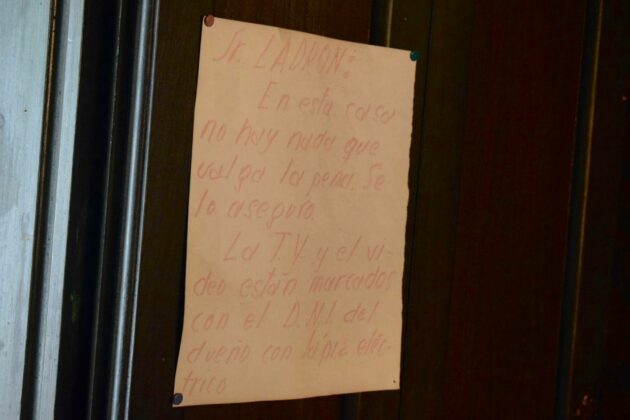 Sr. LADRON:
En esta casa
no hay nada que
valga la pena. Se
lo aseguro.
La T.V. y el vi-
deo están marcados
con el D.N.I. del
dueño con lápiz eléc-
trico